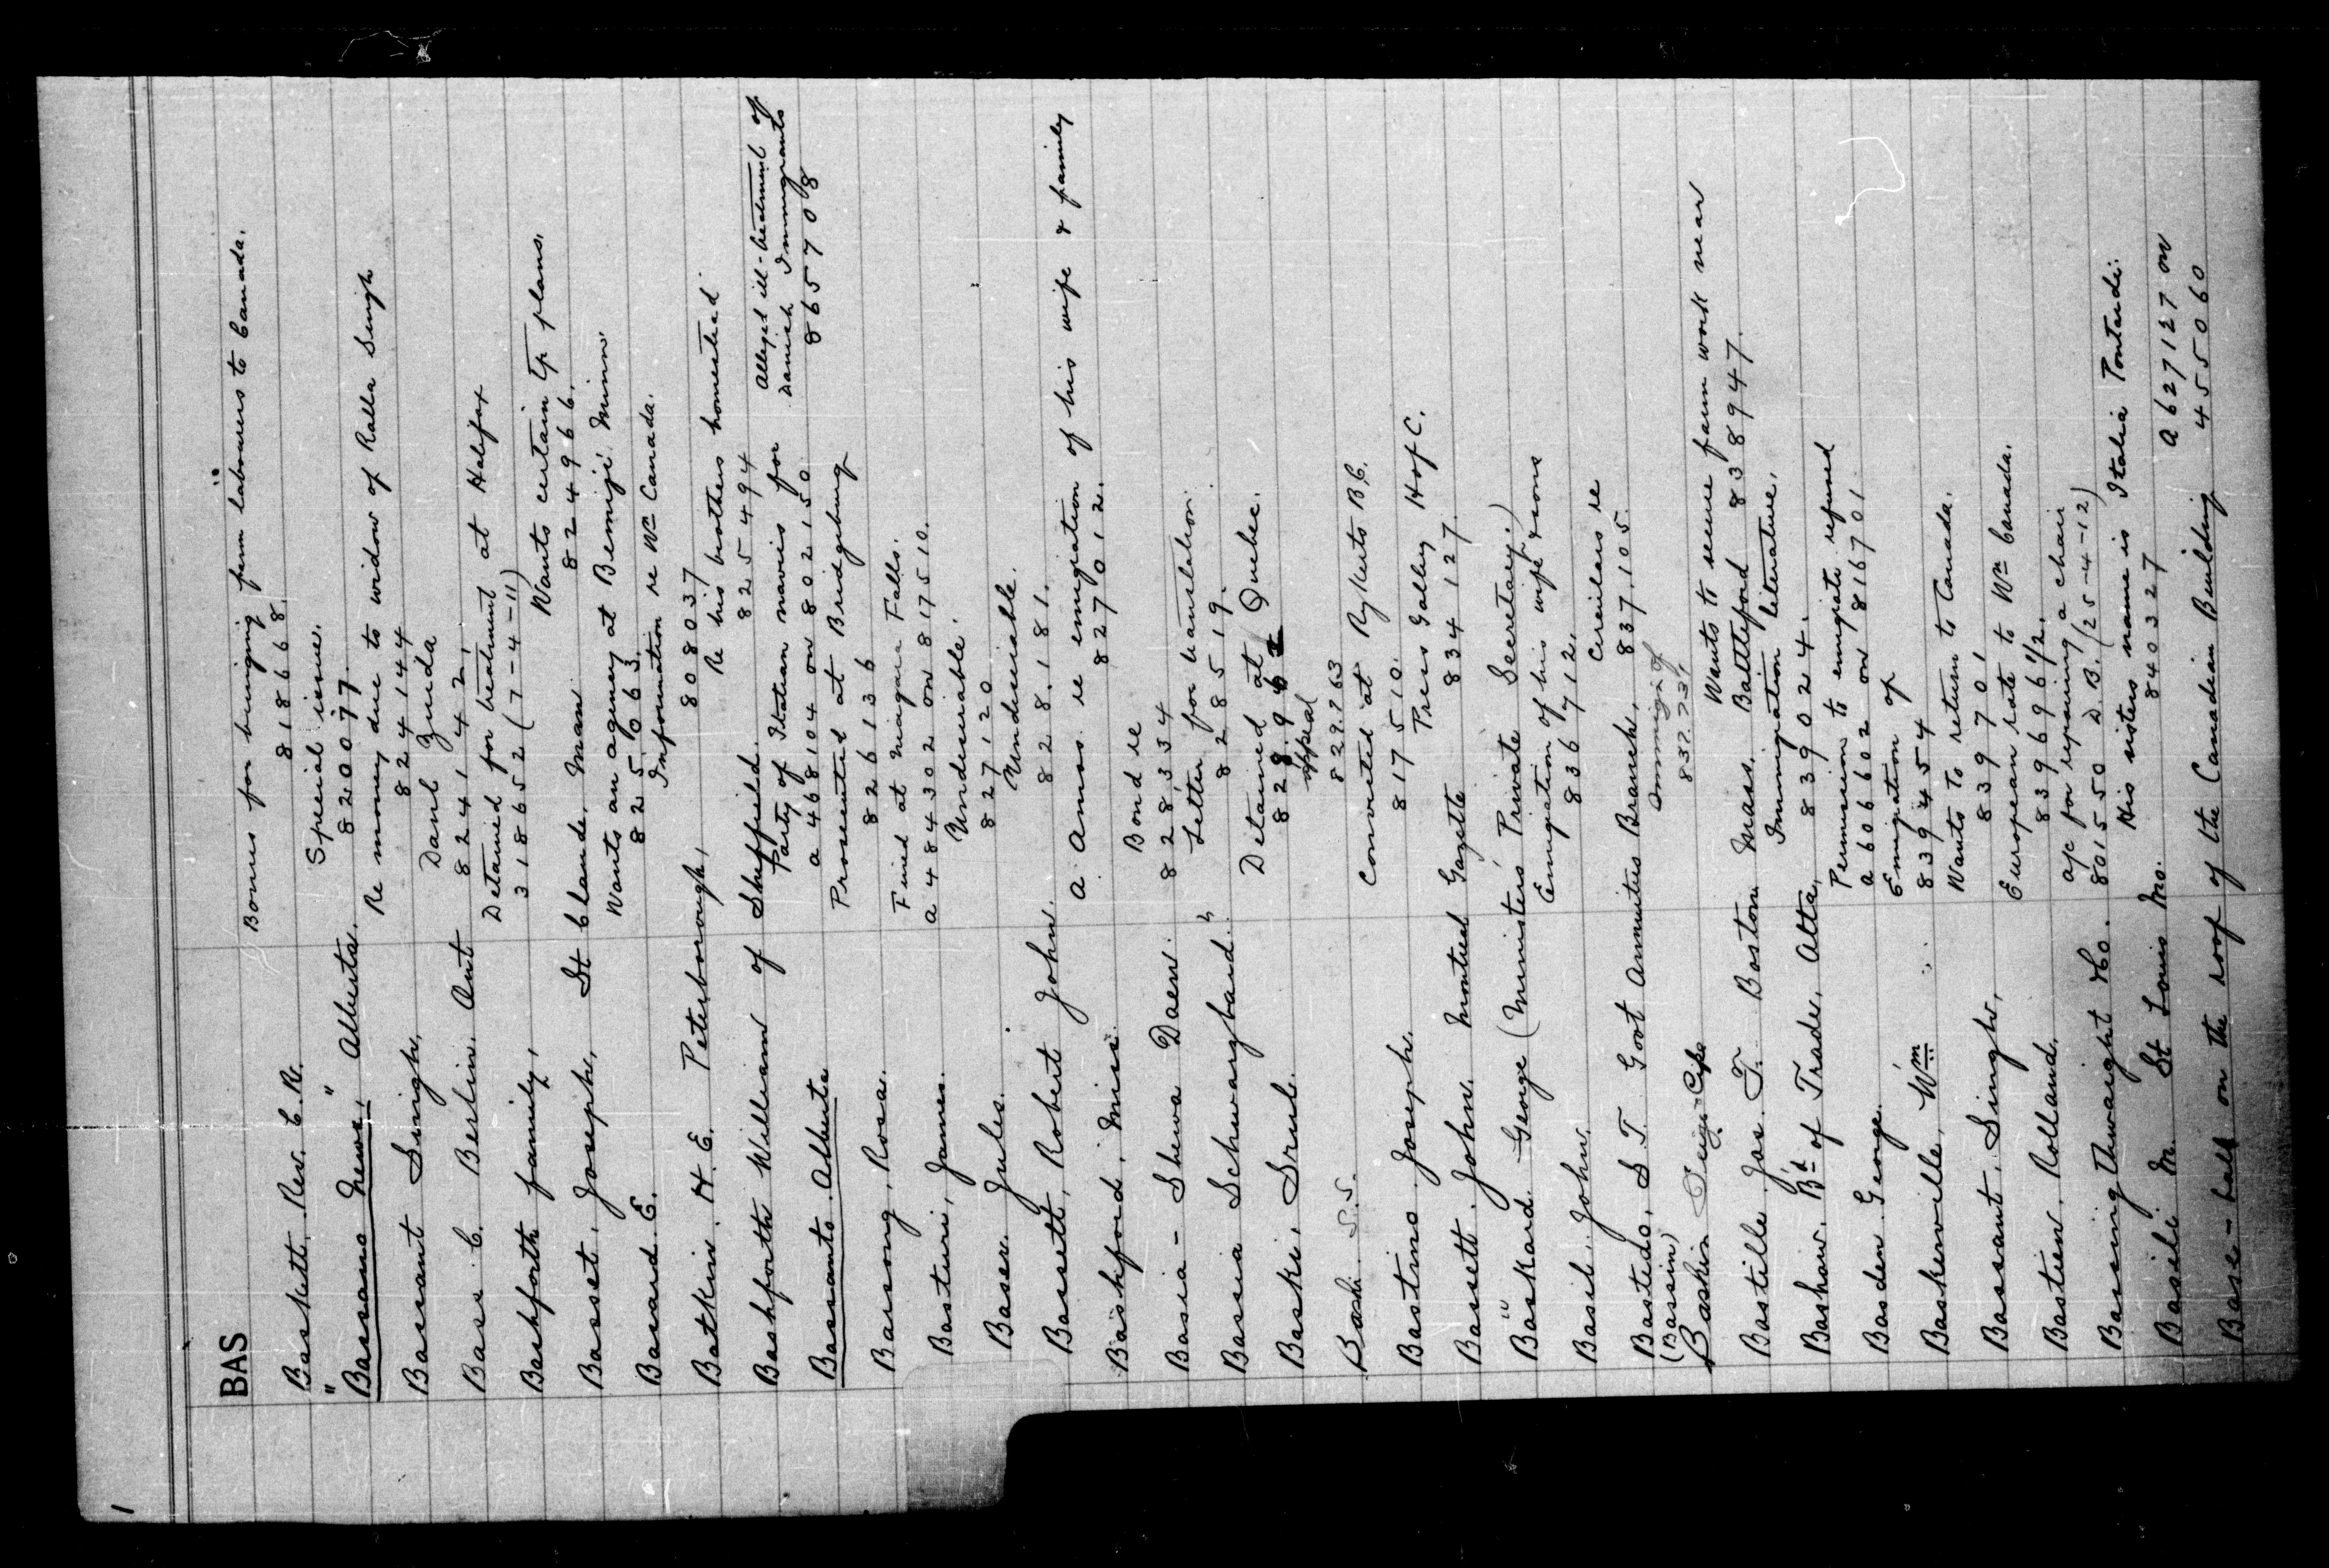 1
BAS
Baskett, Rev. C. R. Bonus for bringing farm labourers to Canada.
818668.
"Bassano News," Alberta. Special issue.
820077.
Bassant Singh, Re money due to widow of Ralla Singh
824144
Bass C. Berlin. Ont Danl Zuida
824142,
Bashforth family, Detained for treatment at Halifax
318652 (7-4-11)
Basset, Joseph, St Claude, Man Wants certain Tp plans.
824966.
Basard E. Wants an agency at Bemiji Minn
825063.
Batkin. H. E. Peterborough, Information re Wn Canada.
808037
Bashforth William of Sheffield. Re his brothers homestead
825494
Bassanto. Alberta Party of Italian navvies for
a 468104 on 802150
Alleged ill-treatment of
Danish Immigrants
865708
Bassong, Rosa. Prosecuted at Bridgeburg
826136
Basturi, James. Fined at Niagara Falls.
a 484302 on 817510.
Baser Jules. Undesirable.
827120
Bassett, Robert John. Undesirable.
828.181.
Bashford, Miss. A. Amos. re emigration of his wife & family
827012.
Basia - Shewa Daew. Bond re
828,334
Bassia Schwarzbard. " Letter for translation.
828519.
Baski, Srul. Detained at Quebec.
Bashi S.S. appeal
829763
Bastino Joseph. Convicted at Rykerts B.C.
817510.
Bassett. John. Montreal Gazette Press Galley H of C.
834127.
Baskard George (Ministers' Private Secretary.)
Basil, John. Emigation of his wife & sons
836712.
Bastedo, S. T. Govt Annuities Branch, Circulars re
837.105.
(Bassin)
Baskin Immign of
837,731,
Bastille Jos. T. Boston Mass. Wants to secure farm work near
Battleford 838947.
Bashaw. Bd of Trade, Alta, Immigration literature,
839024.
Basden George. Permission to emigrate refused
a 606602 on 816701.
Baskerville, Wm Emigration of
839454
Bassant, Singh, Wants to return to Canada.
839701
Bastien, Rolland. European rate to Wn Canada.
839696½.
Bassingthwaight & Co. a/c for repairing a chair
801550 D.B. (25-4-12)
Basili M. St Louis Mo. His sisters name is Italia Pontardi.
840327 a 627127 on
Base-ball on the roof of the Canadian Building 455060